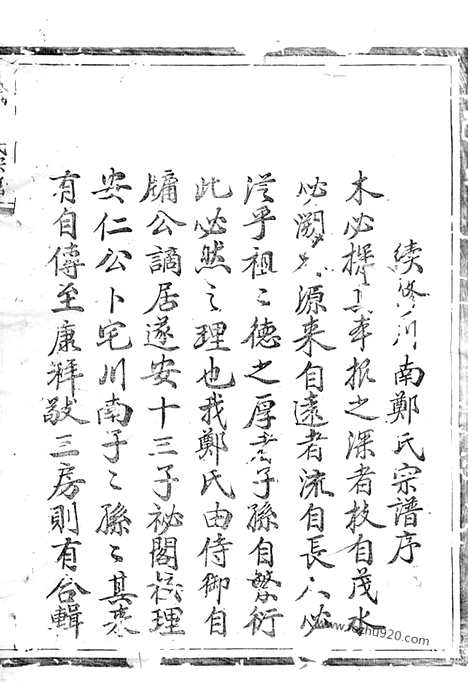 續修川南鄭氏宗譜序
木必探其本根之深者枝自茂水
必溯其源来自遠者流自長人必
從乎祖〻德之厚者子孫自繁衍
此必然之理也我鄭氏由侍御自
牗公謫居遂安十三子祕閣校理
安仁公卜宅川南子〻孫〻其來
有自傳至康祥敬三房則有合輯